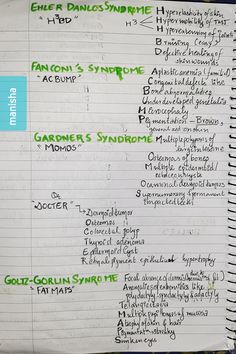 EHLER DANLOS SYNDROME
"H3BD"
H3
Hyperelasticity of skin
Hypermobility of
Hyperextensibility of Joints
Bruising (easy)
Defective healing of
skin wounds
FANCONI'S SYNDROME
"ACBUMP"
Aplastic anemia (familial)
Congenital defects like
Bone abnormalities
Underdeveloped genitalia
Microcephaly
Pigmentation - Brown,
GARDNERS SYNDROME
"MOMOS"
Multiple polyposis of
large intestine
Osteomas of bones
Multiple epidermoid/
Occasional desmoid tumors
Supernumerary & permanent
Impacted teeth
Or
"DOCTER"
Desmoid tumor
Osteomas
Colorectal polyp
Thyroid adenoma
Epidermoid Cyst
Retinal pigment epithelial hypertrophy
GOLTZ-GORLIN SYNROME
"FATMAPS"
Focal absence of dermis
Anomalies of extremities like
polydactyly, syndactyly & adactyly
Telangiectasia
Multiple papillomas of mucosa
Atrophy of skin & hair
Pigmentation
Sunken eyes
manisha